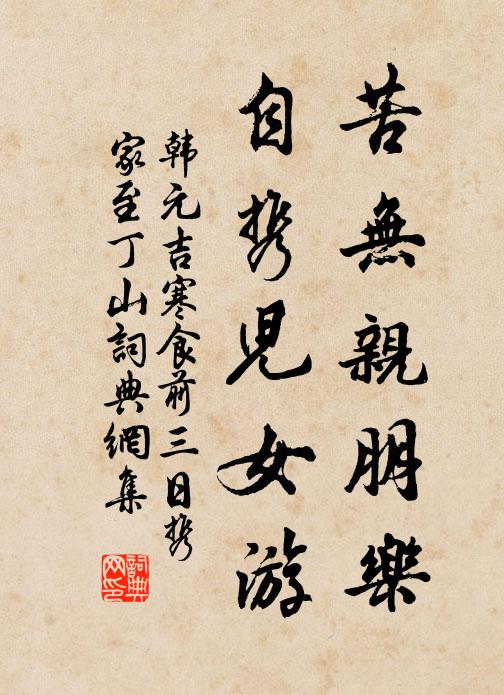 苦無親朋樂
自携兒女游
韩元吉寒食前三日携
家至丁山詞典網集
詞典
网印